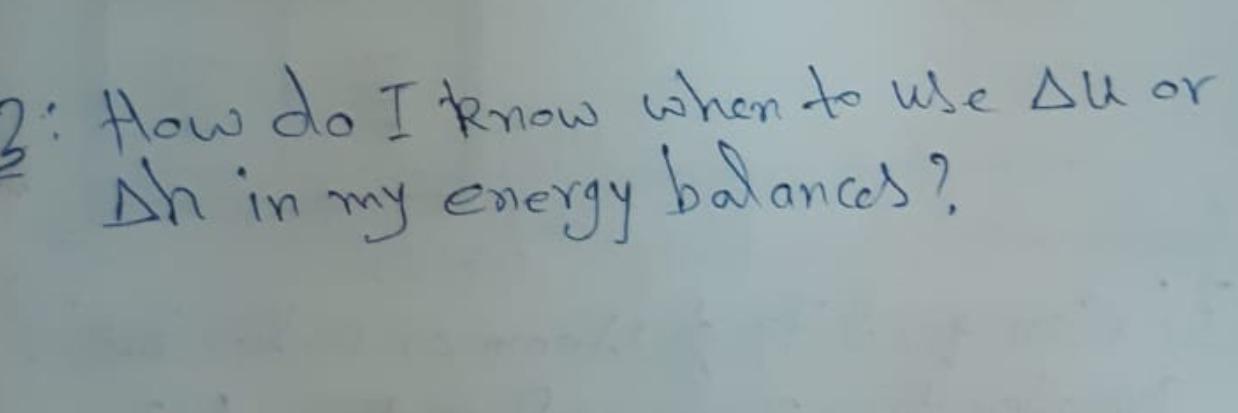 3: How do I know when to use Δu or
Δh in my energy balances?